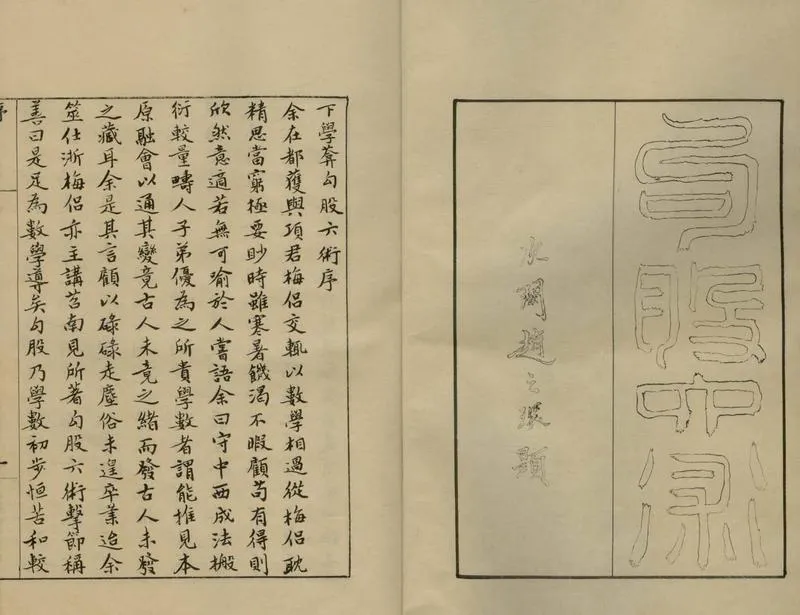 句股六術
次閑趙之琛題
下學葊勾股六術序
余在都獲與項君梅侶交輒以數學相過從梅侶耽
精思當窮極要眇時雖寒暑饑渴不暇顧苟有得則
欣然意適若無可喻於人嘗語余曰守中西成法搬
衍較量疇人子弟優為之所貴學數者謂能推見本
原融會以通其變竟古人未竟之緒而發古人未發
之藏耳余是其言顧以碌碌走塵俗未遑卒業迨余
筮仕浙梅侶亦主講苕南見所著勾股六術擊節稱
善曰是足為數學導矣勾股乃學數初步恒苦和較
序
一